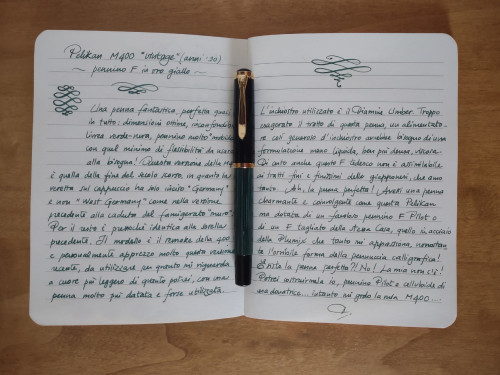 Pelikan M400 "vintage" (anni '90)
~ pennino F in oro giallo ~
Una penna fantastica, perfetta quasi
in tutto: dimensioni ottime, inconfondibile
livrea verde-nera, pennino molto "morbido"
con quel minimo di flessibilità da usare
alla bisogna! Questa versione della M400
è quella della fine del secolo scorso, in quanto la
veretta sul cappuccio ha solo inciso "Germany"
e non "West Germany" come nella versione
precedente alla caduta del famigerato "muro".
Per il resto è pressoché identica alla sorella
precedente. Il modello è il remake della 400
e personalmente apprezzo molto questa versione
recente, da utilizzare per quanto mi riguarda
a cuore più leggero di quanto potrei, con una
penna molto più datata e forse utilizzata.
L'inchiostro utilizzato è il Diamine Umber. Troppo
esagerato il tratto di questa penna, un alimentatore
così generoso d'inchiostro avrebbe bisogno di una
formulazione meno liquida, ben più densa, viscosa.
Di certo anche questo F tedesco non è assimilabile
ai tratti fini e finissimi delle giapponesi, che amo
tanto. Ah, la penna perfetta! Avrei una penna
charmante e coinvolgente come questa Pelikan
ma dotata di un favoloso pennino F Pilot o
di un F tagliato della stessa Casa, quello in acciaio
della Plumix che tanto mi appassiona, nonostante
l'orribile forma della pennuccia calligrafica!
Esiste la penna perfetta?! No! La mia non c'è!
Potrei costruirmela io, pennino Pilot e celluloide di
una donatrice... intanto mi godo la mia M400...